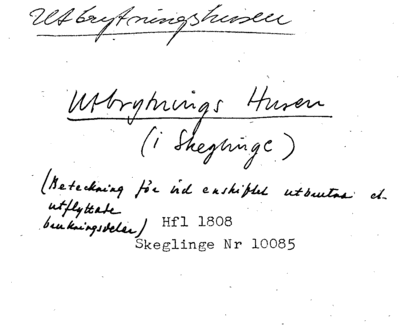 Utbrytningshusen
Utbrytnings Husen
(i Skeglinge)
(Beteckning för vid enskiftet utbrutna o.
utflyttade
brukningsdelar)
Hfl 1808
Skeglinge Nr 10085